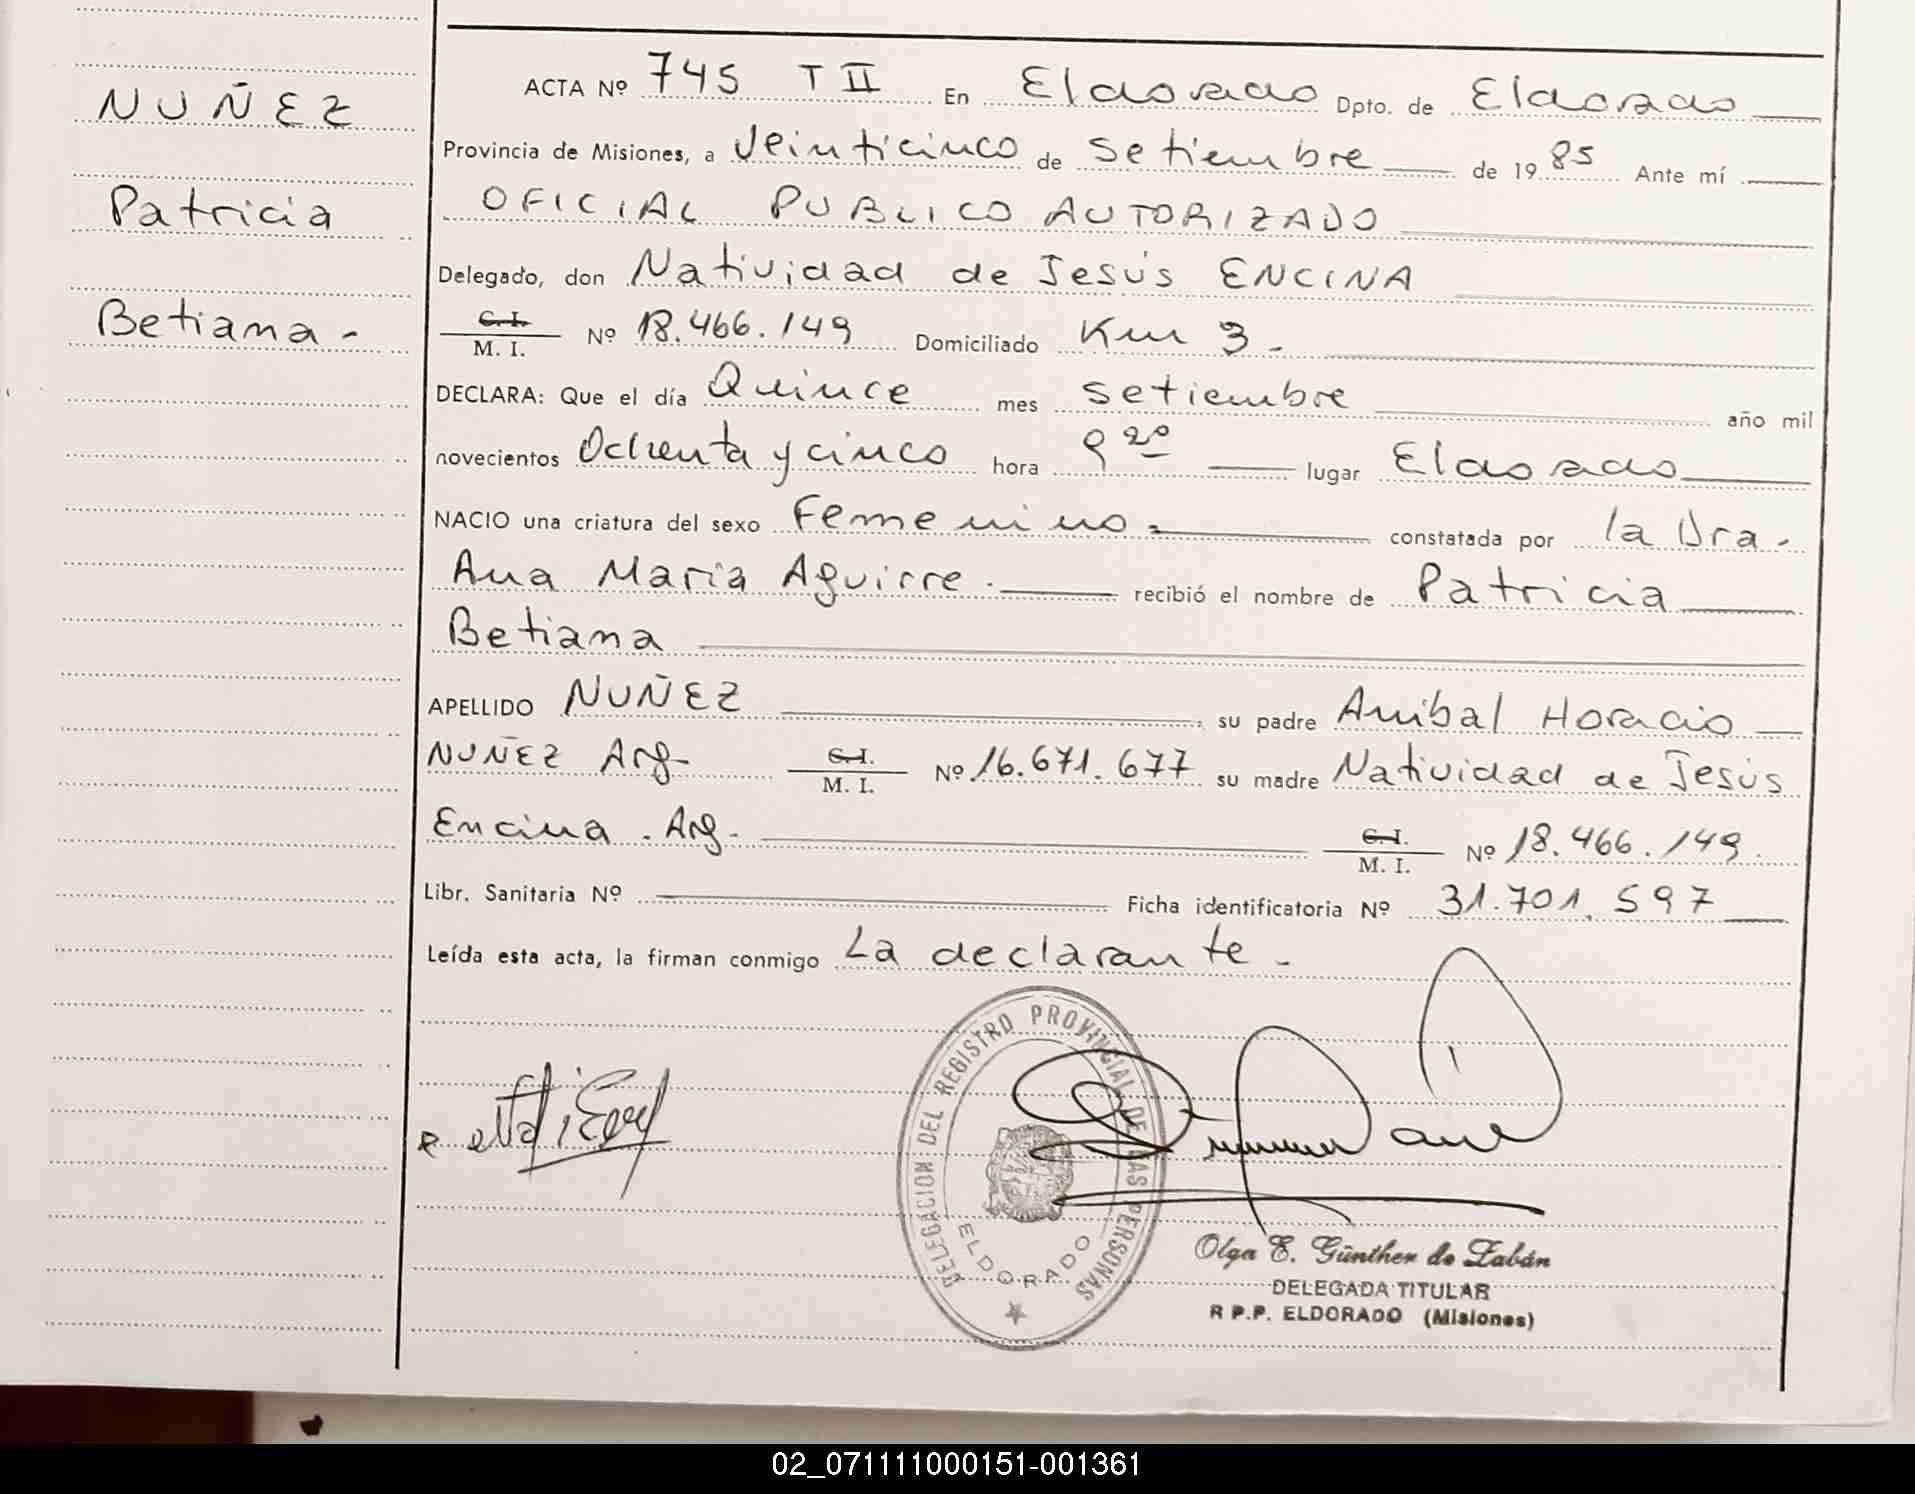 NUÑEZ
Patricia
Betiana -
ACTA Nº 745 T II En Eldorado Dpto. de Eldorado
Provincia de Misiones, a Veinticinco de Setiembre de 19 85 Ante mí
OFICIAL PUBLICO AUTORIZADO
Delegado, don Natividad de Jesús ENCINA
C. I.
M. I. Nº 18.466.149 Domiciliado Km 3.
DECLARA: Que el día Quince mes setiembre año mil
novecientos Ochenta y cinco hora 9 20 lugar Eldorado
NACIO una criatura del sexo Femenino - constatada por la Dra.
Ana Maria Aguirre. recibió el nombre de Patricia
Betiana
APELLIDO NUÑEZ su padre Anibal Horacio
NUÑEZ Arg- C. I.
M. I. Nº 16.671.677 su madre Natividad de Jesús
Encina . Arg- C. I.
M. I. Nº 18.466.149
Libr. Sanitaria Nº Ficha identificatoria Nº 31.701.597
Leída esta acta, la firman conmigo La declarante -
DELEGACION DEL REGISTRO PROVINCIAL DE LAS PERSONAS
ELDORADO
Olga E. Günther de Zabán
DELEGADA TITULAR
R P.P. ELDORADO (Misiones)
02_071111000151-001361